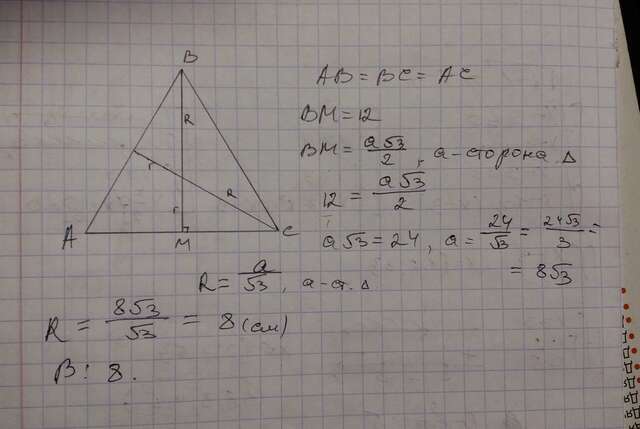 B
R
r
R
r
A
M
C
AB = BC = AC
BM = 12
BM = a√3/2, a - сторона Δ
12 = a√3/2
a√3 = 24, a = 24/√3 = 24√3/3 =
= 8√3
R = a/√3, a - ст. Δ
R = 8√3/√3 = 8 (см)
В: 8.